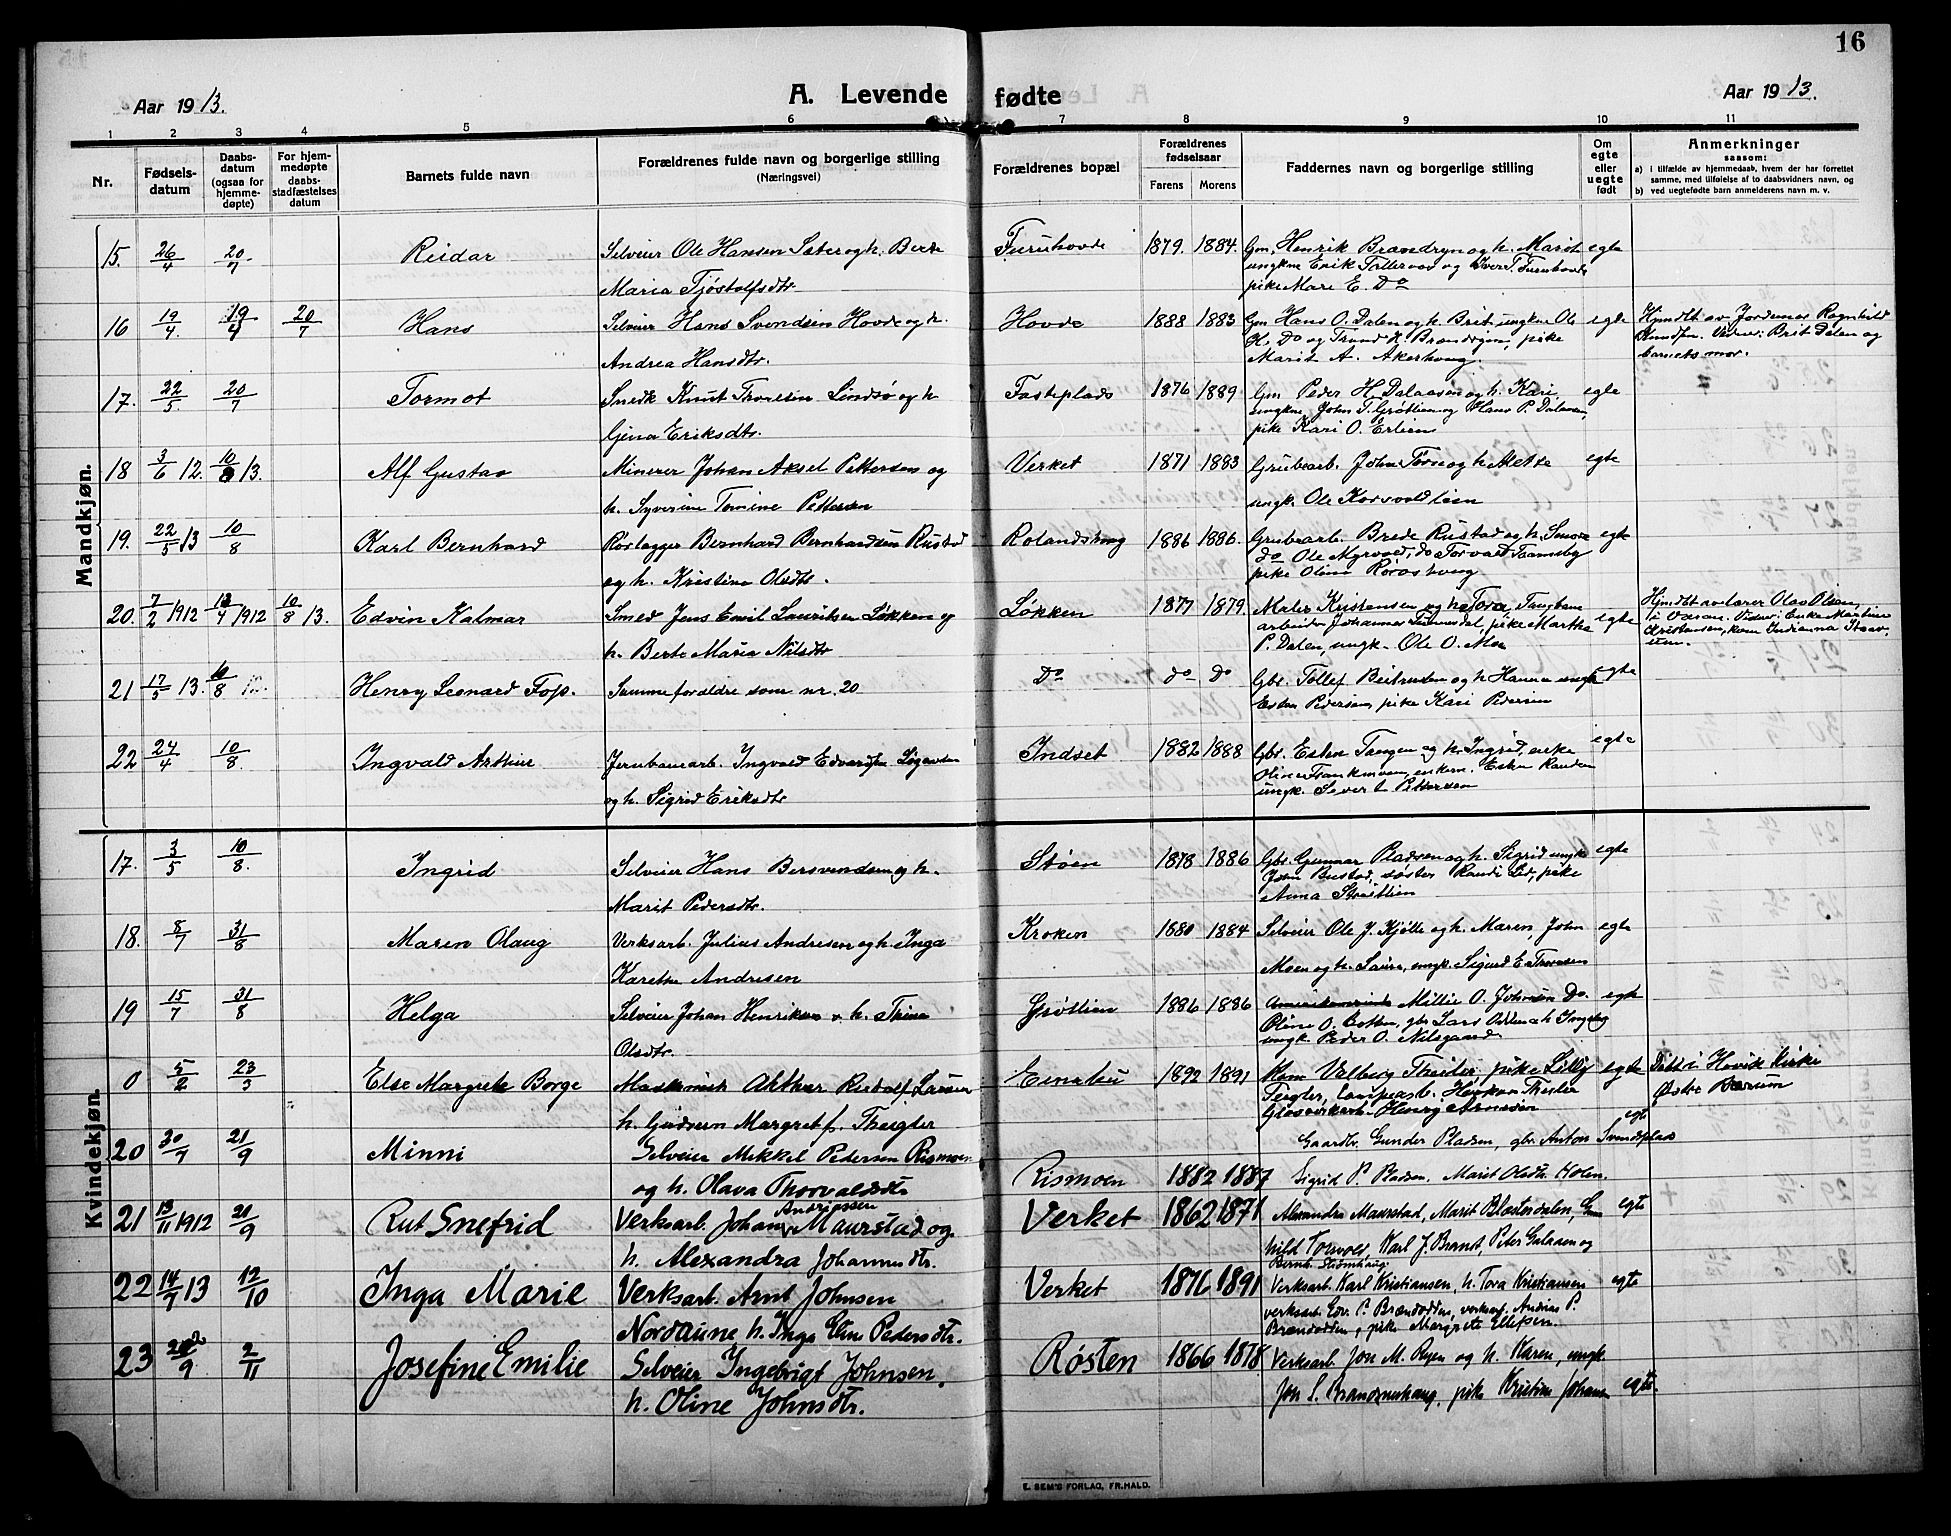 16
Aar 1913.
A. Levende fødte
Aar 1913.
1 2 3 4 5 6 7 8 9 10 11
Nr.
Fødsels-
datum
Daabs-
datum
(ogsaa for
hjemme-
døpte)
For hjem-
medøpte
daabs-
stadfæstelses
datum
Barnets fulde navn
Forældrenes fulde navn og borgerlige stilling
(Næringsvei)
Forældrenes bopæl
Forældrenes
fødselsaar
Farens Morens
Faddernes navn og borgerlige stilling
Om
egte
eller
uegte
født
Anmerkninger
saasom:
a) i tilfælde av hjemmedaab, hvem der har forrettet
samme, med tilføielse af to daabsvidners navn, og
b) ved uegtefødte barn anmelderens navn m. v.
Mandkjøn.
15. 26/4 20/7 Reidar Selveier Ole Hansen Sæter og h. Berte Furuhovde 1879. 1884. Gm. Henrik Brændryen og h. Marit egte
Maria Tjøstolfsdtr. ungkne Erik Tollervod og Iver T. Furuhovde
pike Mari E. Do
16 19/4. 19/4 20/7 Hans Selveier Hans Svendsen Hovde og h. Hovde 1888 1883 Gm Hans O. Dalen og h. Brit, ungk. Ole egte Hjmdt. av Jordemor Ragnhild
Andrea Hansdtr. H. Do og Trond K. Brændryen, pike Knudsen. Vidner: Brit Dalen og
Marit A. Akerhaug. barnets mor.
17. 22/5 20/7 Tormot Snedk Knut Troresen Lindsø og h. Fasteplads 1876 1889 Gm Peder H. Dalaasen og h. Kari, egte
Gjena Eriksdtr. ungkne John T. Grøtlien og Hans P. Dalaasen,
pike Kari O. Erlien
18 3/6 12. 10/8 13. Alf Gustav Minerer Johan Aksel Pettersen og Verket 1871 1883 Grubearb. John Torn og h. Mette egte
h. Syverine Tomine Pettersen ungk. Ole Korsvoldlien
19. 22/5 13 10/8 Karl Bernhard Rørlægger Bernhard Bernhardsen Rustad Rolandshaug 1886 1886. Grubearb. Brede Rustad og h. egte
og h. Kristine Olsdtr. do Ole Myrvold, do Torvald Tamneby
pike Oline Røroshaug
20. 7/2 1912 13/4 1912 10/8 13. Edvin Kalmar Smed Jens Emil Lauritsen Løkken og Løkken 1877 1879. Maler Kristensen og h. Tora, egte Hjmdt av lærer Olav Olsen,
h. Berte Maria Nilsdtr arbeider Johannes, pike Marthe i Aasen. Vidner: Enke Martine
P. Dalen, ungk. Ole O. Moe Kristensen, kone Indianna
21 17/5 13. 10/8 Henry Leonard Fop. Samme forældre som nr. 20 Do do do Gbr. Tollef Beitrusten og h. Hanna ungk egte
Esten Pedersen, pike Kari Pedersen
22 24/4 10/8. Ingvald Arthur Jernbanearb. Ingvald Edvardsen Løgavlen Indset 1882 1888 Gbr. Esten Tangen og h. Ingrid, enke egte
og h. Sigrid Eriksdtr Oline, enkem. Esten Randen
ungk. Sivert Pettersen
Kvindekjøn.
17. 3/5 10/8. Ingrid Selveier Hans Bersvendsen og h. Støen 1878 1886 Gbr. Gunnar Pladsen og h. Sigrid ungk egte
Marit Pedersdtr. John Bustad, søster Randi Lid, pike
Anna Strøtlien
18. 8/7 31/8 Maren Olaug Verksarb. Julius Andresen og h. Inga Kroken 1880 1884 Selveier Ole J. Kjølle og h. Maren, John egte
Karethe Andresen Moen og h. Laura, ungk. Sigurd E. Troresen
19 15/7 31/8 Helga Selveier Johan Henriksen o. h. Trine Grøtlien 1886 1886 Millie O. Johnsen Do. egte
Olsdtr. Oline O. Botten, gbr Lars og h Ingeborg
ungk Peder O. Nilsgaard
0 5/2 23/3 Else Margrethe Borge Maskinist Arthur Rudolf Larsen Einabu 1892 1891 Kom Valborg Theiler, pike Lilly egte Døbt i Høvik kirke
h. Gudrun Margret f. Theigler Teigler, Haakon Theiler Østre Bærum
Glasverkarb. Henry Arnesen
20 30/7 21/9 Minni Selveier Mikkel Pedersen Rismoen Rismoen 1882 1887 Gaardbr. Gunder Pladsen, gbr Anton Svendsplads egte
og h. Olava Thorvaldsdtr Sigrid P. Pladsen. Marit Olsdtr. Holen.
21 13/11 1912 21/9 Rut Snefrid Verksarb. Johan Andriassen Maurstad og Verket 1862 1871 Alexandra Maurstad, Marit Blæsterdalen, Gun egte
h. Alexandra Johannesdtr. hild Torvold, Karl J. Brandt, Peter Galaasen og
Bernh. Strømhaug.
22 14/7 13 12/10 Inga Marie Verksarb. Arnt Johnsen Verket 1876 1891 Verksarb. Karl Kristiansen, h. Tora Kristiansen egte
Nordaune h. Inga Elen Pedersdtr. verksarb. Edv. P. Brændodden, verksarb. Andias P.
Brændodden, pike Margrete Ellefsen.
23 /9 2/11 Josefine Emilie Selveier Ingebrigt Johnsen, Røsten 1866 1878 Verksarb. Jon M. Ryen og h. Karen, ungk.
h. Oline Johnsdtr. Jon S. Brandsneshaug, pike Kristine Johansen egte.
E. SEM'S FORLAG, FR.HALD.